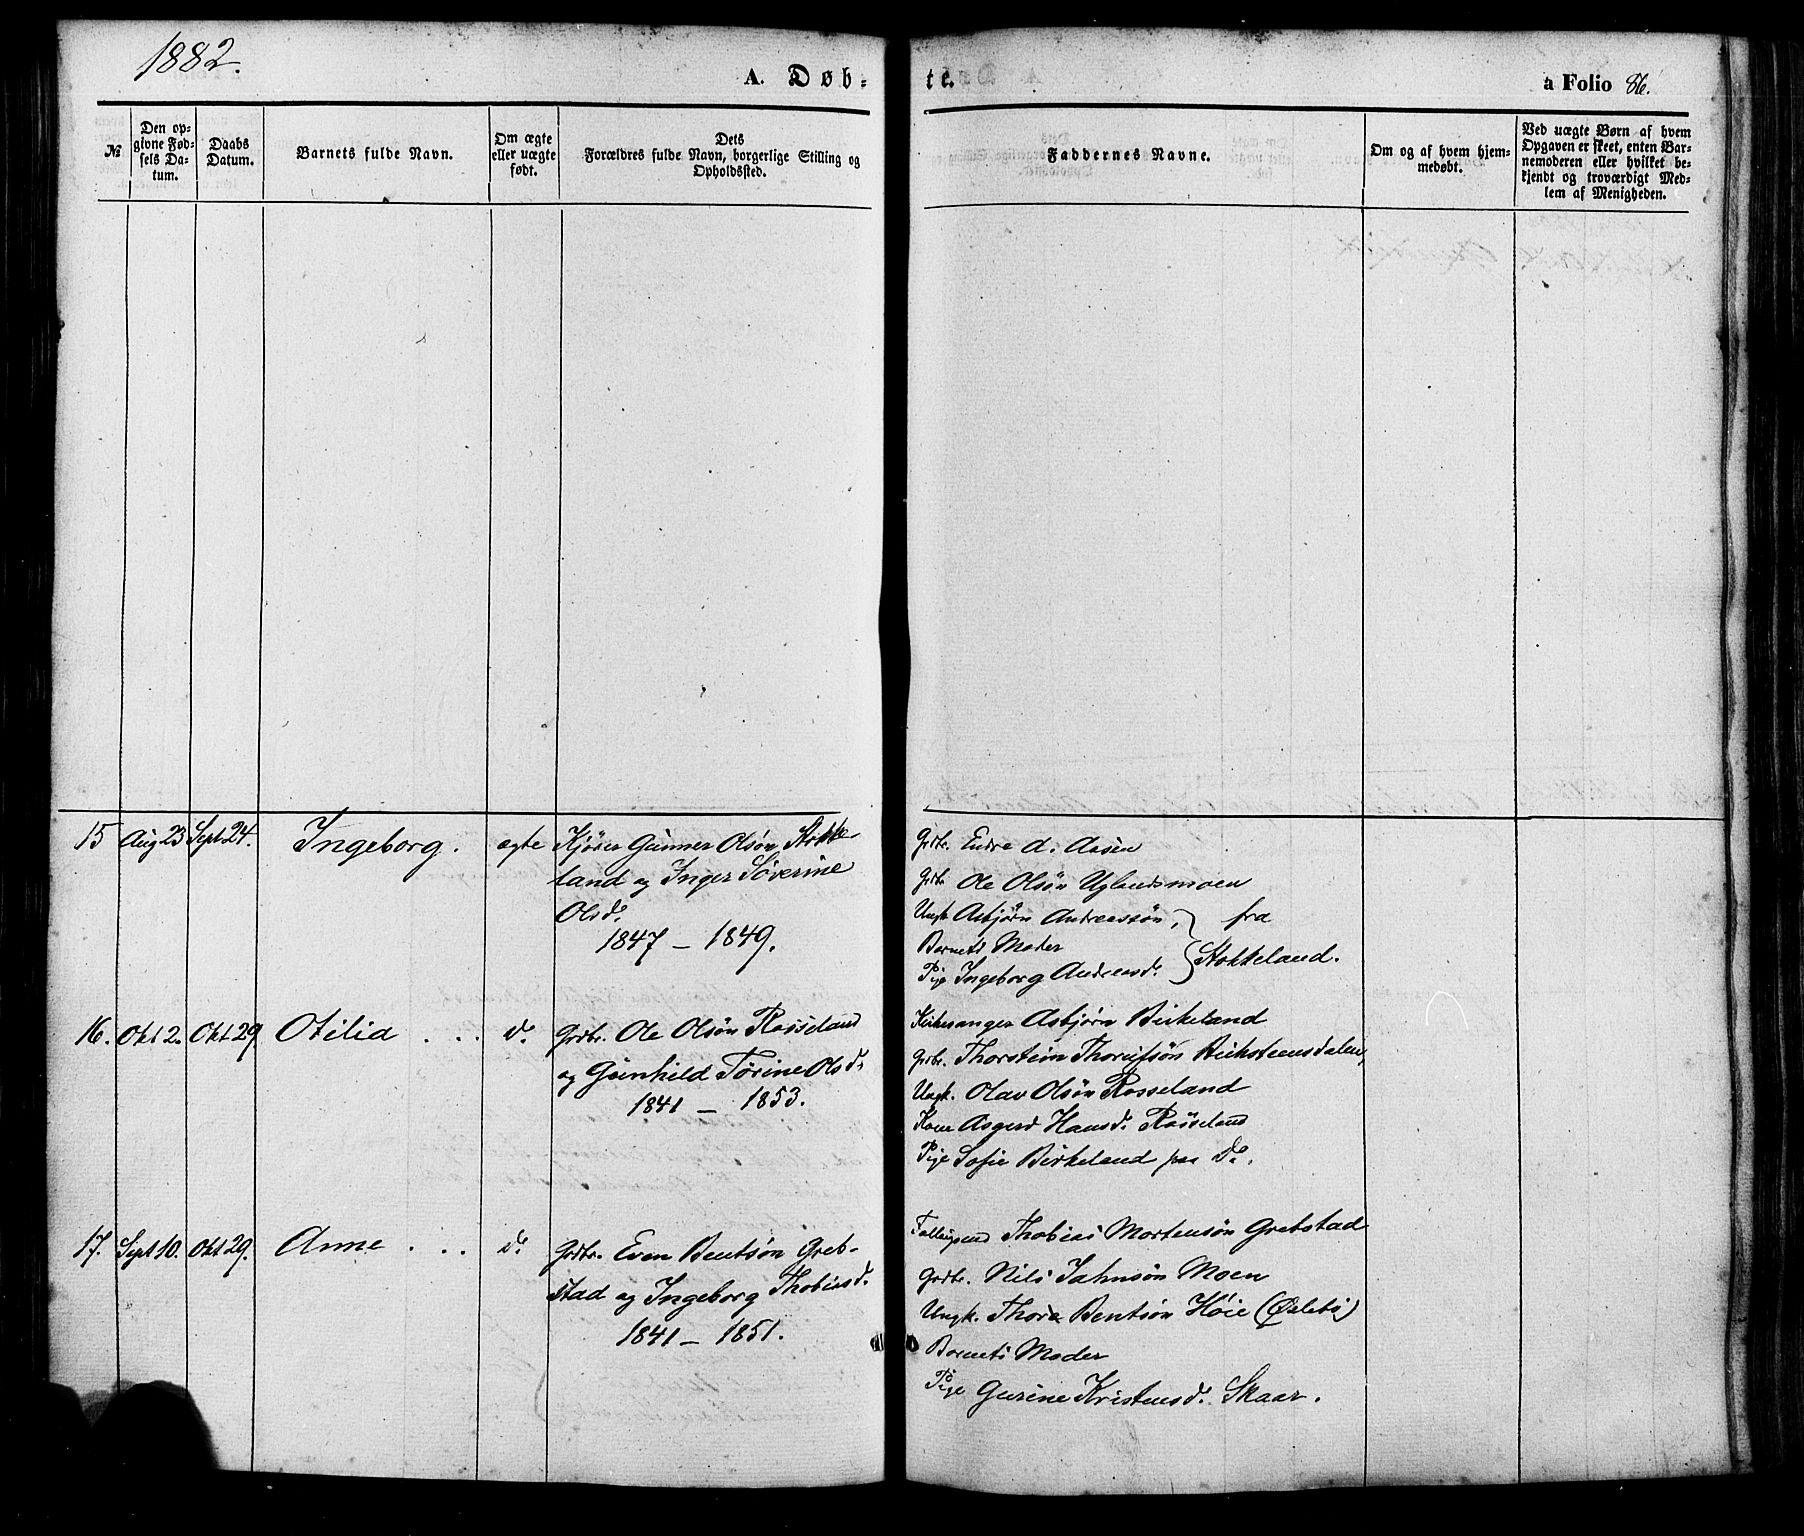 1882.
A. Døb-
te.
a Folio 86.
№
Den op-
givne Fød-
sels Da-
tum.
Daabs
Datum.
Barnets fulde Navn.
Om ægte
eller uægte
født.
Dets
Forældres fulde Navn, borgerlige Stilling og
Opholdssted.
Faddernes Navne.
Om og af hvem hjem-
medøbt.
Ved uægte Børn af hvem
Opgaven er skeet, enten Bar-
nemoderen eller hvilket be-
kjendt og troværdigt Med-
lem af Menigheden.
15 Aug 23 Sept 24. Ingeborg. ægte
Gunner Olsön Stokke-
land og Inger Söverine
Olsd.
1847 – 1849.
Grdbr. Endre A. Aasen
Grdbr. Ole Olsön Uglandsmoen
Ungk. Asbjörn Andreassön,
Barnets Moder
Pige Ingeborg Andreasd.
fra
Stokkeland.
16. Okt 2. Okt 29 Otilia . . . d.
Grdbr. Ole Olsön Rosseland
og Gunhild Törine Olsd.
1841 – 1853.
Kirkesanger Asbjörn Birkeland
Grdbr. Thorstein
Ungk. Olav Olsön Rosseland
Kone Asgerd Hansd. Rosseland
Pige Sofie Birkeland paa Do.
17. Sept 10. Okt 29. Anne . . . d.
Grdbr. Even Bentsön Greb-
stad og Ingeborg Thobiasd.
1841 – 1851.
Thobias Mortensön Grebstad
Grdbr. Nils Jahnsön Moen
Ungk. Thore Bentsön Höie (Öslebö)
Barnets Moder
Pige Gurine Kristensd. Skaar.